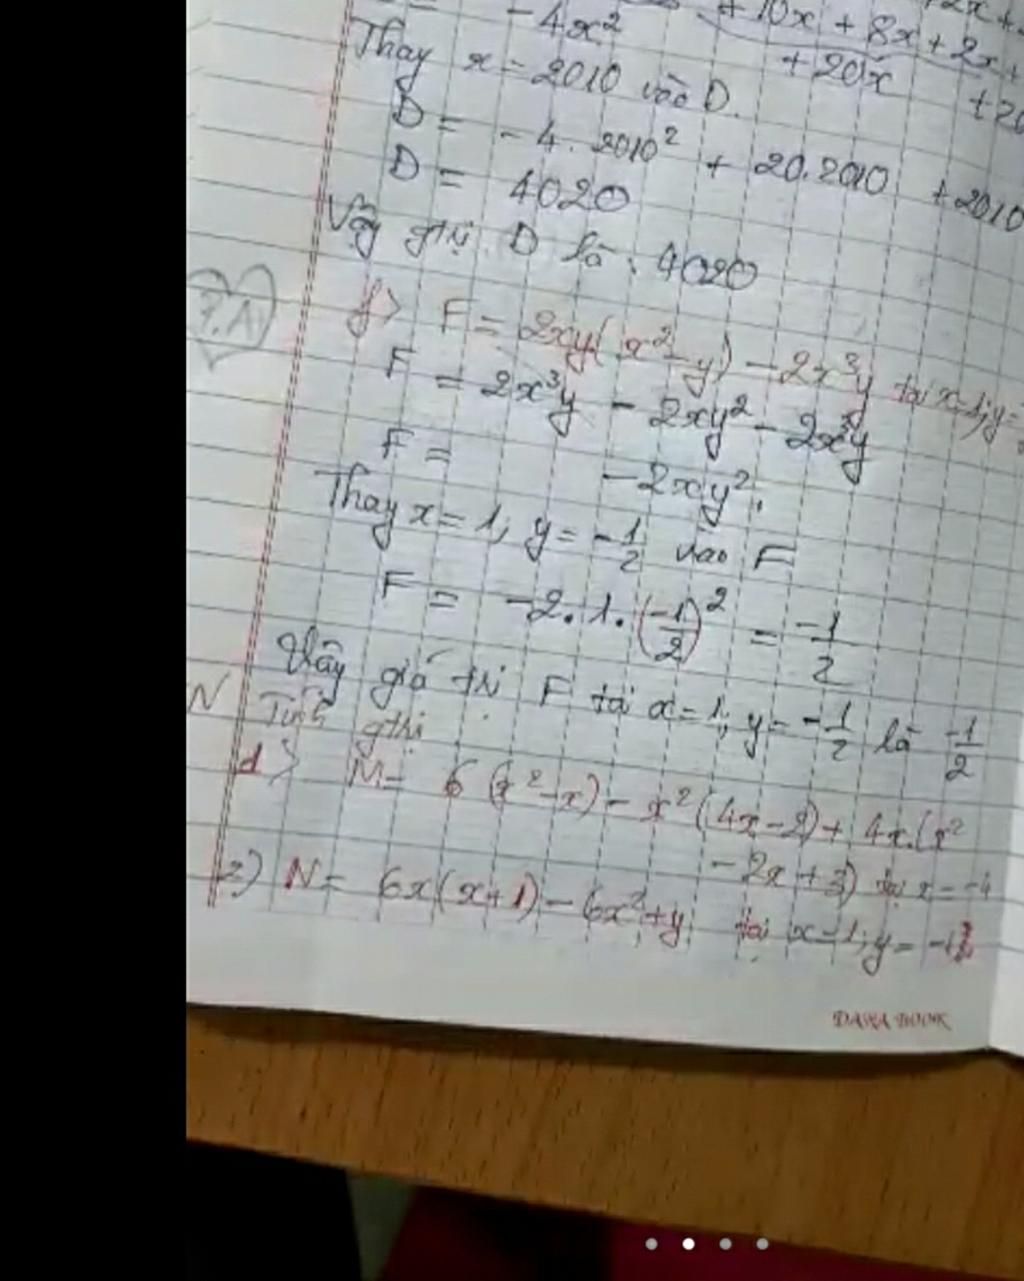 - 4x² + 10x + 8x + 2x +
+ 20x
Thay x = 2010 vào D.
D = - 4. 2010² + 20.2010 + 2010
D = 4020
Vậy gtrị D là : 4020
F = 2xy(x² - y) - 2x³y tại x=1; y=
F = 2x³y - 2xy² - 2x³y
F = -2xy².
Thay x = 1, y = -1/2 vào F
F = -2. 1. (-1/2)² = -1/2
Vậy giá trị F tại x=1; y= -1/2 là -1/2
N Tính gtrị
d> M= 6(x² - x) - x²(4x-2) + 4x.(x²
- 2x + 3) tại x = -4
2) N= 6x(x+1) - 6x² + y tại x=1; y=
DAHA BOOK